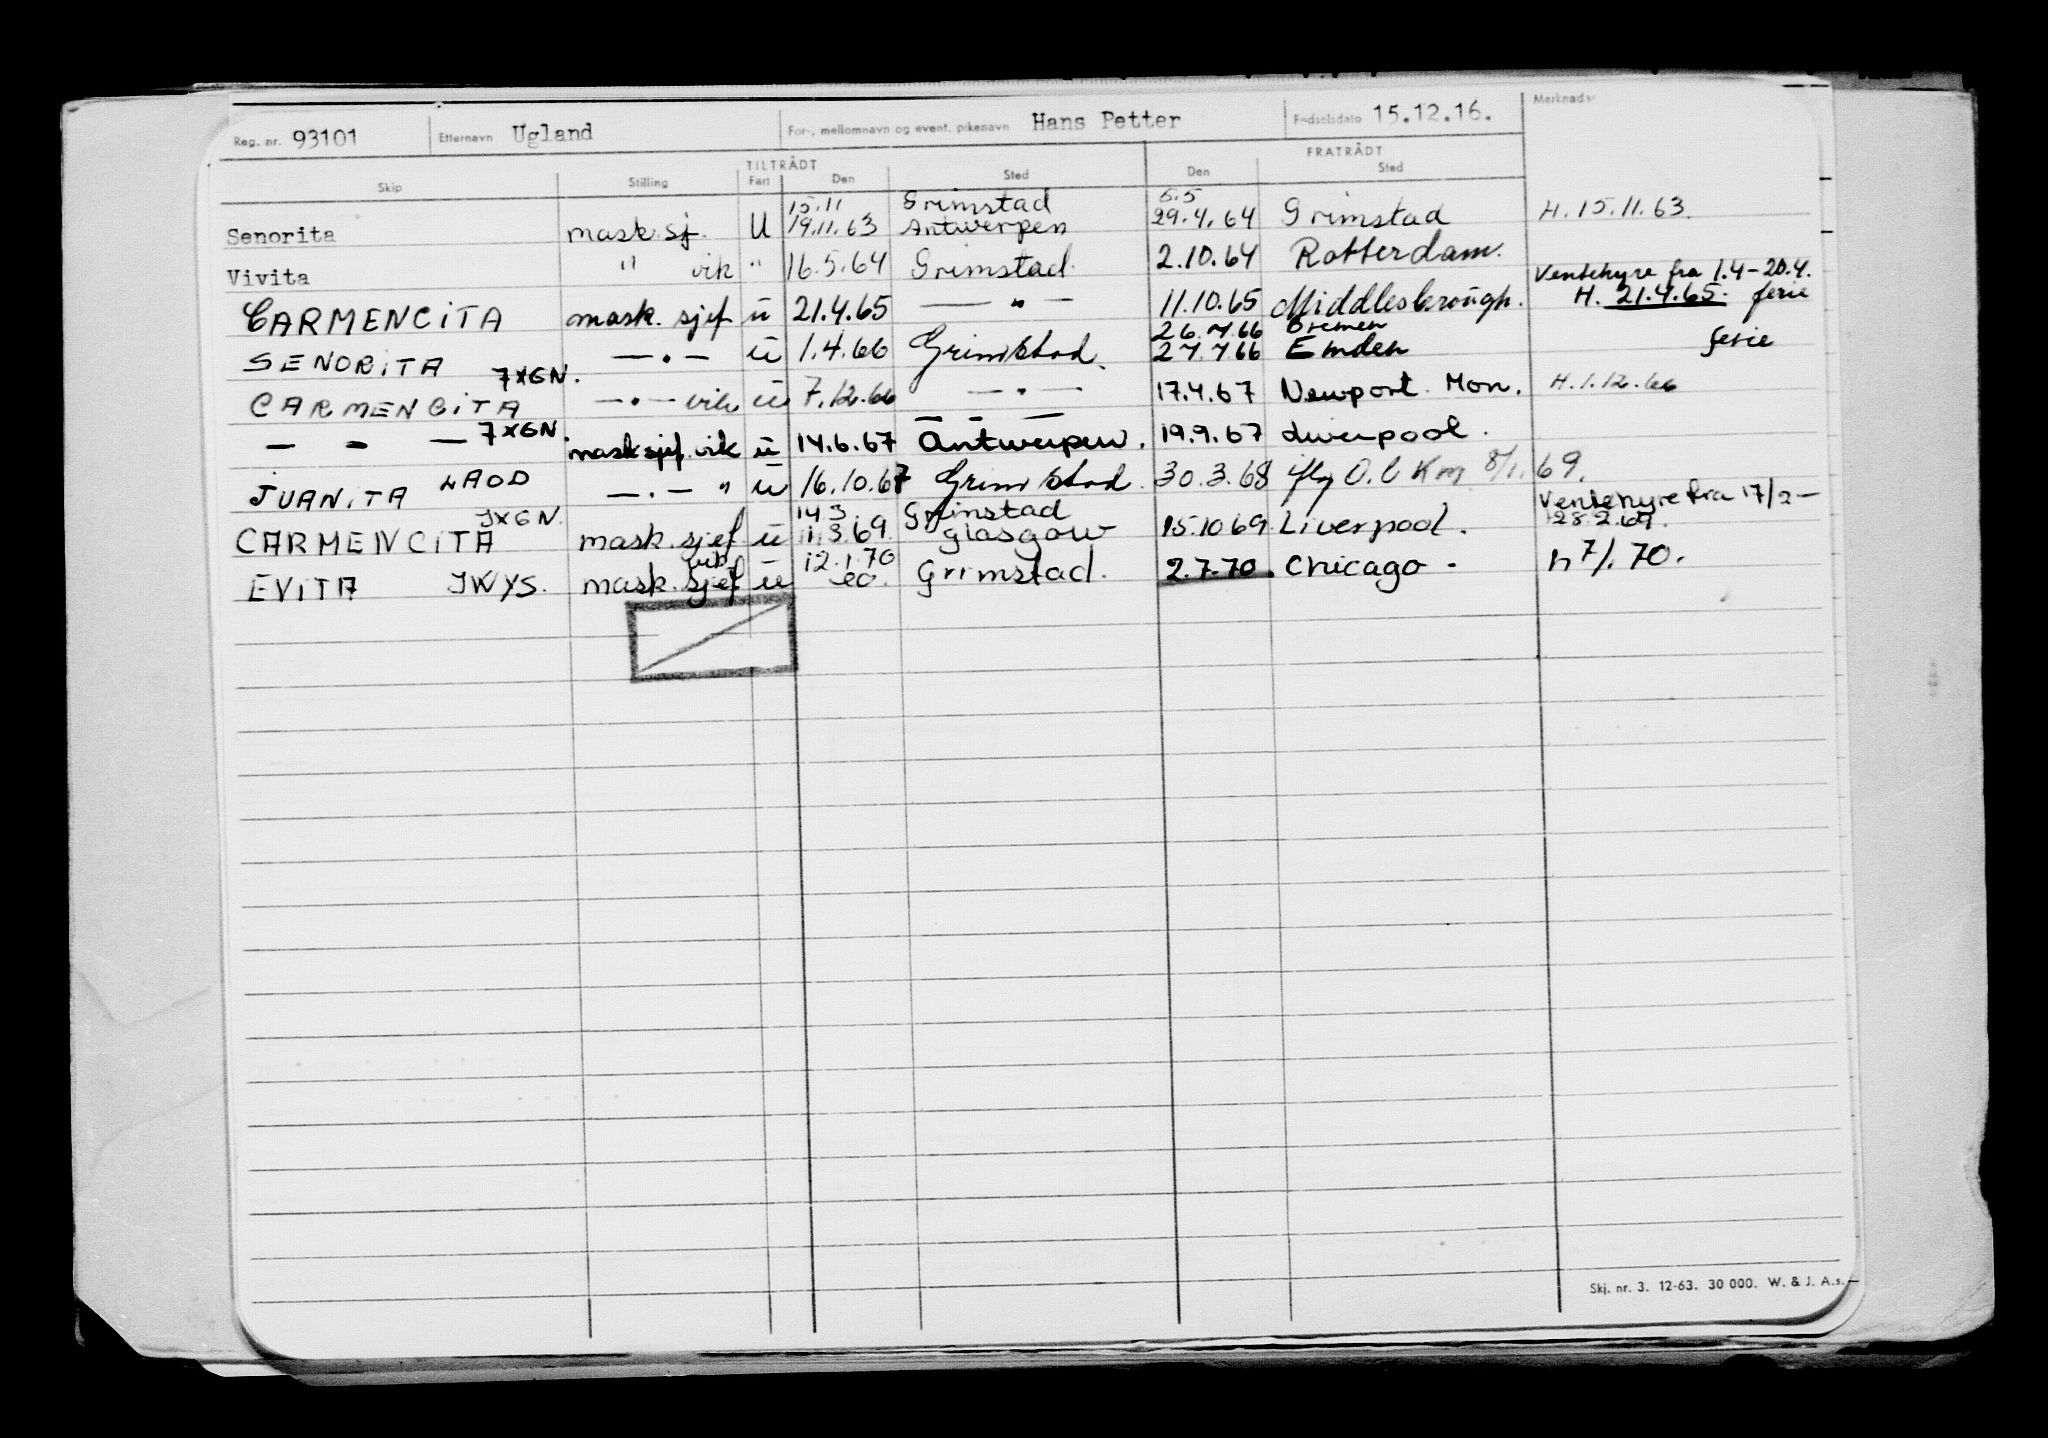 Reg. nr. 93101 Etternavn Ugland For-, mellomnavn og event. pikenavn Hans Petter Fødselsdato 15.12.16. Merknader
TILTRÅDT FRATRÅDT
Skip Stilling Fart Den Sted Den Sted
15.11 Grimstad 5.5
Senorita mask.sj. U 19.11.63 Antwerpen 29.4.64 Grimstad H. 15.11.63.
Vivita " vik " 16.5.64 Grimstad. 2.10.64 Rotterdam.
Ventehyre fra 1.4-20.4.
CARMENCITA mask. sjef u 21.4.65 — " — 11.10.65 Middlesbrough. H. 21.4.65. ferie
26.7.66 Bremen
SENORITA — " — u 1.4.66 Grimstad. 27.7.66 Emden ferie
CARMENCITA JXGN. — " — vik u 7.12.66 — " — 17.4.67 Newport. Mon. H.1.12.66
— " — JXGN. mask sjef. vik u 14.6.67 Antwerpen. 19.9.67 Liverpool.
JUANITA LAOD — " — " u 16.10.67 Grimstad. 30.3.68 iflg O.C Km 8/1.69.
14 3. Grimstad Ventehyre fra 17/2 —
CARMENCITA JXGN. mask. sjef u 1.3.69. Glasgow 15.10 69. Liverpool. 28.2.69.
vik 12.1.70
EVITA JWYS. mask. sjef u Grimstad. 2.7.70. Chicago - h 7/1. 70.
Skj. nr. 3. 12-63. 30 000. W. & J. A.s.